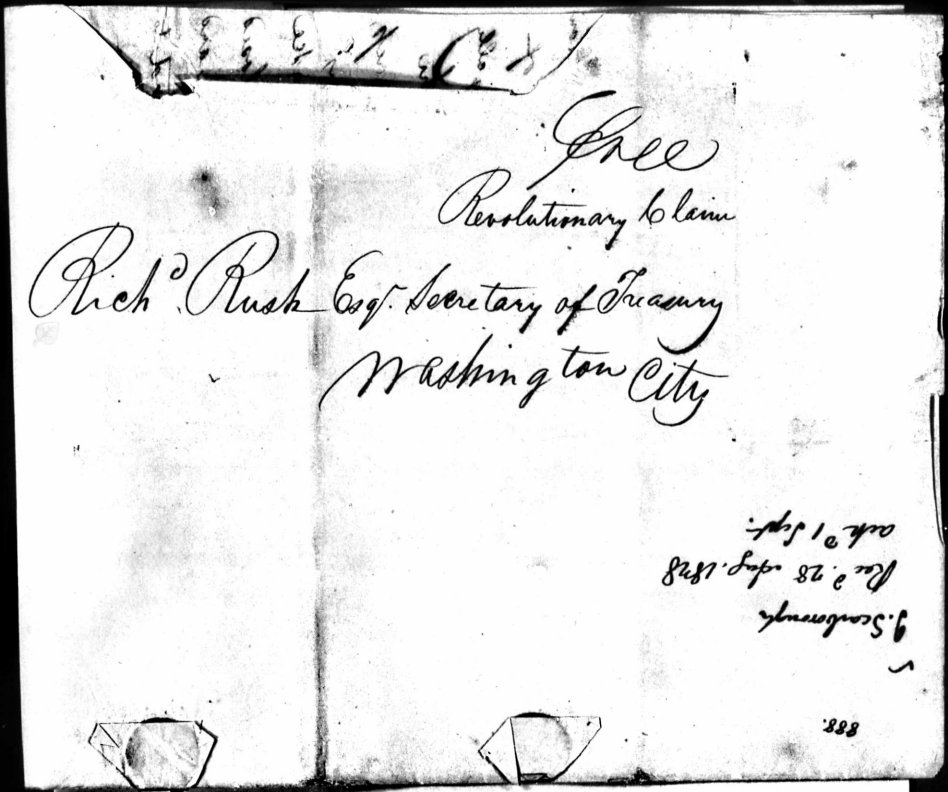 Free
Revolutionary Claim
Rich.d Rush Esqr. Secretary of Treasury
Washington City
888.
J. Scarborough
Rec.d 28 Aug. 1828
ack.d 1 Sept.